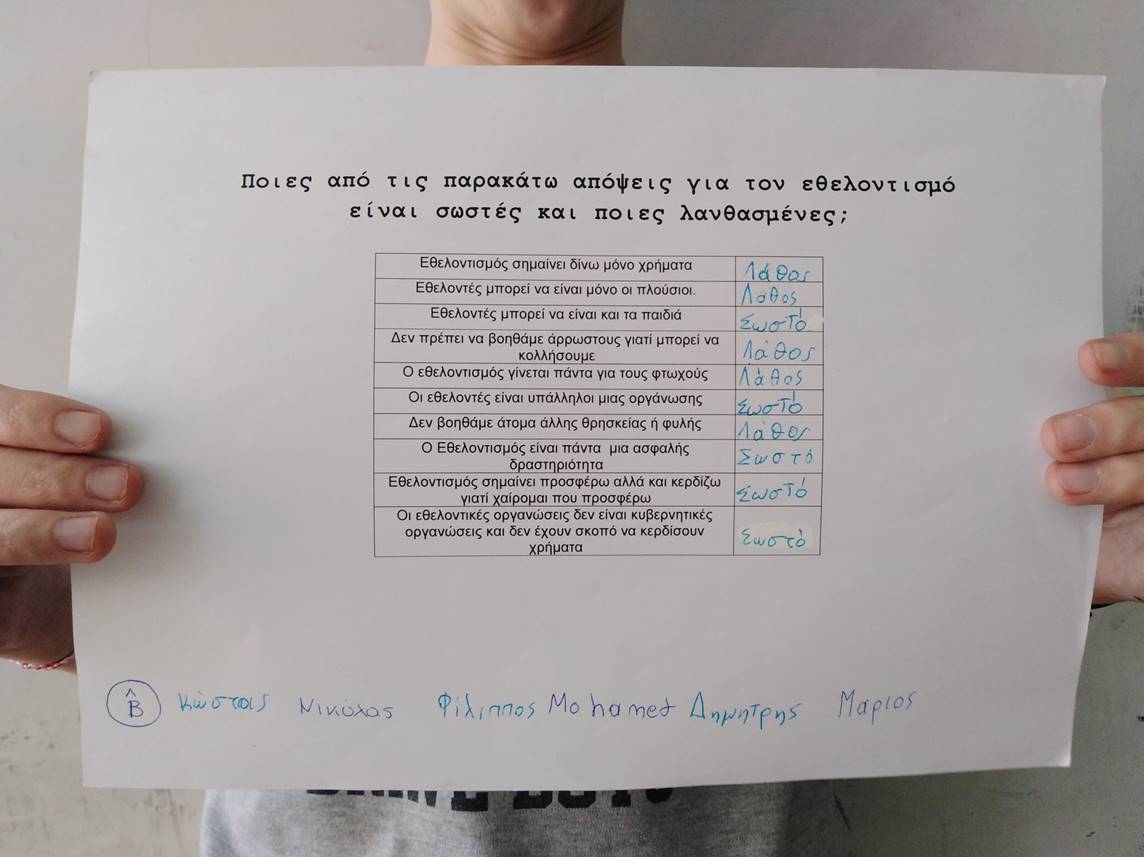 Ποιες από τις παρακάτω απόψεις για τον εθελοντισμό
είναι σωστές και ποιες λανθασμένες;
Εθελοντισμός σημαίνει δίνω μόνο χρήματα Λάθος
Εθελοντές μπορεί να είναι μόνο οι πλούσιοι. Λάθος
Εθελοντές μπορεί να είναι και τα παιδιά Σωστό
Δεν πρέπει να βοηθάμε άρρωστους γιατί μπορεί να
κολλήσουμε Λάθος
Ο εθελοντισμός γίνεται πάντα για τους φτωχούς Λάθος
Οι εθελοντές είναι υπάλληλοι μιας οργάνωσης Σωστό
Δεν βοηθάμε άτομα άλλης θρησκείας ή φυλής Λάθος
Ο Εθελοντισμός είναι πάντα μια ασφαλής
δραστηριότητα Σωστό
Εθελοντισμός σημαίνει προσφέρω αλλά και κερδίζω
γιατί χαίρομαι που προσφέρω Σωστό
Οι εθελοντικές οργανώσεις δεν είναι κυβερνητικές
οργανώσεις και δεν έχουν σκοπό να κερδίσουν
χρήματα Σωστό
Β Κώστας Νικόλας Φίλιππος Mohamed Δημήτρης Μάριος